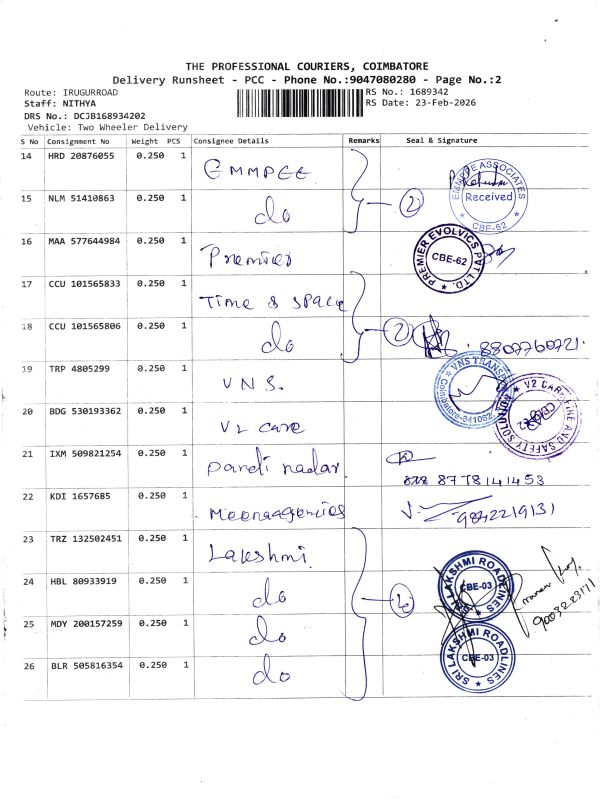 THE PROFESSIONAL COURIERS, COIMBATORE
Delivery Runsheet - PCC - Phone No.:9047080280 - Page No.:2
Route: IRUGURROAD RS No.: 1689342
Staff: NITHYA RS Date: 23-Feb-2026
DRS No.: DCJB168934202
Vehicle: Two Wheeler Delivery
S No Consignment No Weight PCS Consignee Details Remarks Seal & Signature
14 HRD 20876055 0.250 1 EMMPEE
EMMPEE ASSOCIATES Received CBE-62
15 NLM 51410863 0.250 1 do 2
16 MAA 577644984 0.250 1 Premier
PREMIER EVOLVICS PVT LTD. CBE-62
17 CCU 101565833 0.250 1 Time & space
18 CCU 101565806 0.250 1 do 2 8807760721.
19 TRP 4805299 0.250 1 VNS.
VNS TRANSP Coimbatore-641062
20 BDG 530193362 0.250 1 V2 care
V2 CARE FIRE AND SAFETY SOLUTION
21 IXM 509821254 0.250 1 pandi nadar
8778141453
22 KDI 1657685 0.250 1 Meenaagencies 9842219131
23 TRZ 132502451 0.250 1 Lakshmi
SRI LAKSHMI ROADLINES CBE-03
24 HBL 80933919 0.250 1 do
25 MDY 200157259 0.250 1 do
26 BLR 505816354 0.250 1 do
SRI LAKSHMI ROADLINES CBE-03